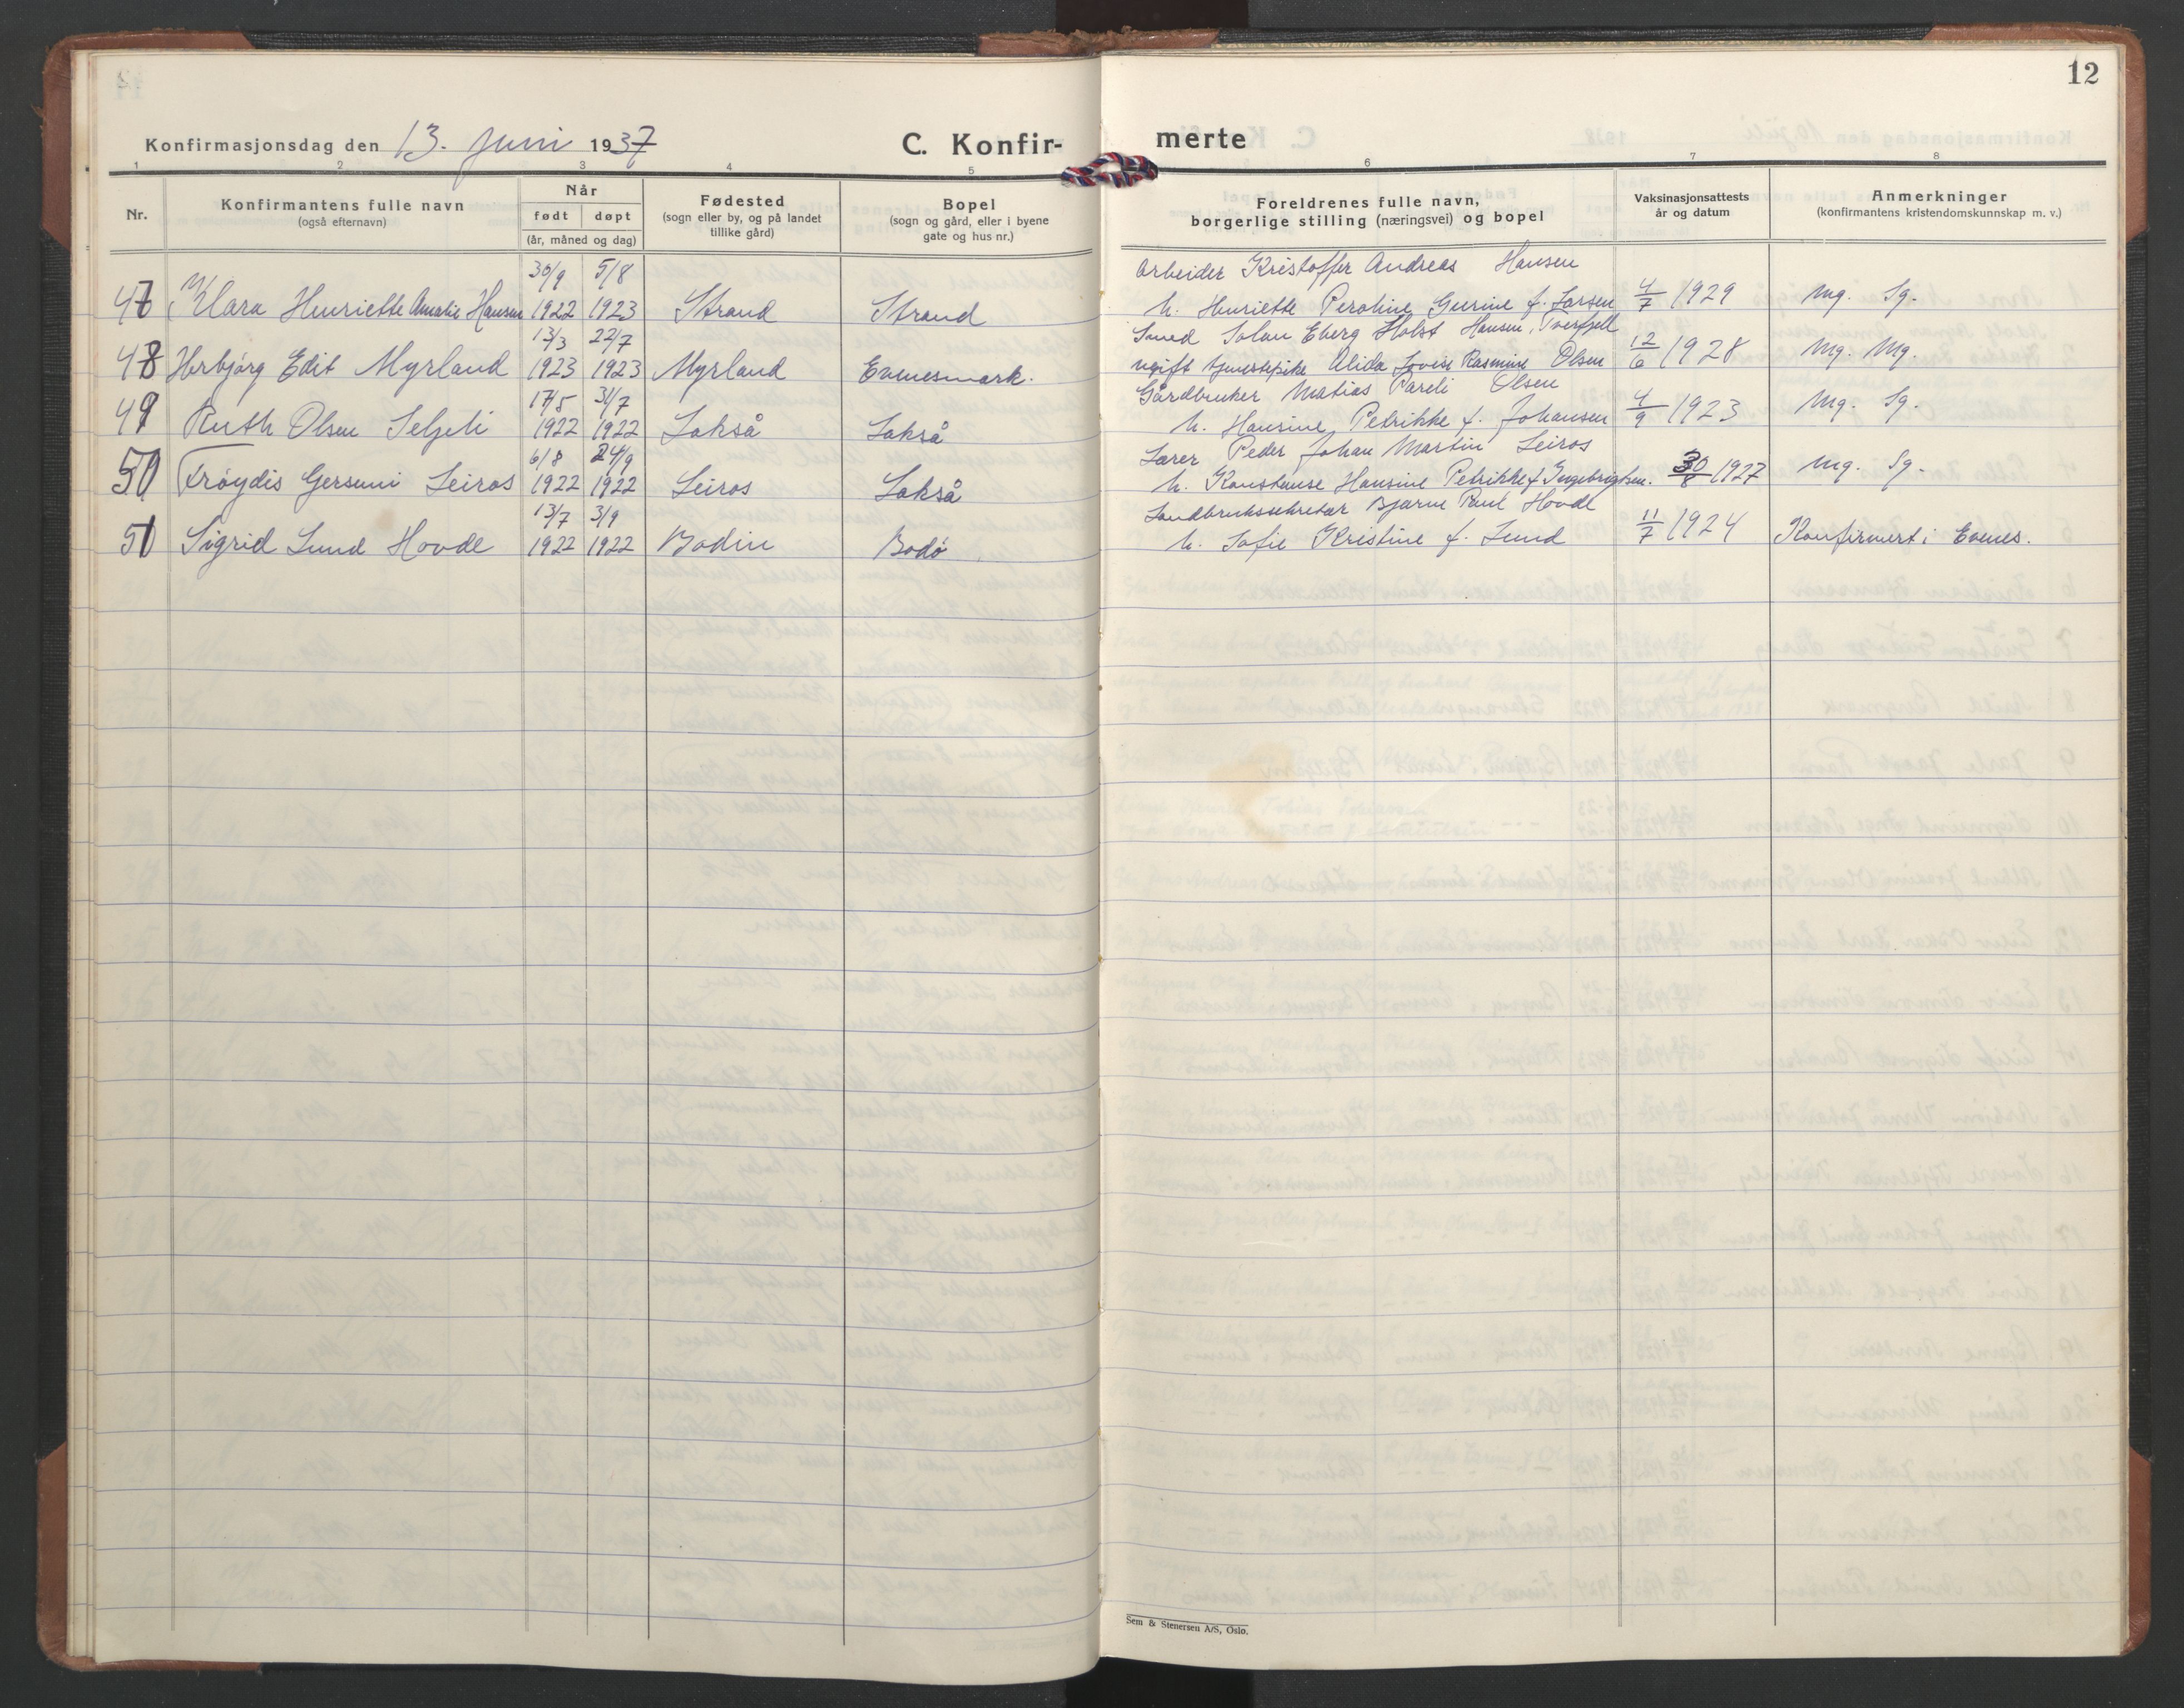 12
Konfirmasjonsdag den 13. juni 1937
C. Konfir-
merte
1 2 3 4 5 6 7 8
Nr.
Konfirmantens fulle navn
(også efternavn)
Når
født døpt
(år, måned og dag)
Fødested
(sogn eller by, og på landet
tillike gård)
Bopel
(sogn og gård, eller i byene
gate og hus nr.)
Foreldrenes fulle navn,
borgerlige stilling (næringsvei) og bopel
Vaksinasjonsattests
år og datum
Anmerkninger
(konfirmantens kristendomskunnskap m. v.)
30/9 5/8 Arbeider Kristoffer Andreas Hansen
47 Klara Henriette Amalie Hansen 1922 1923 Strand Strand h. Henriette Peroline Gurine f. Larsen 4/7 1929 Mg. Sg.
13/3 22/7 Smed Johan Eberg Holst Hansen, Tverfjell
48 Herbjørg Edit Myrland 1923 1923 Myrland Evenesmark. ugift tjenestepike Alida Lovise Rasmine Olsen 12/6 1928 Mg. Mg.
17/5 31/7 Gårdbruker Matias Pareli Olsen
49 Ruth Olsen Seljeli 1922 1922 Lakså Lakså h. Hansine Petrikke f. Johansen 4/9 1923 Mg. Sg.
6/8 24/9 Lærer Peder Johan Martin Leiros
50 Frøydis Gersemi Leiros 1922 1922 Leiros Lakså h. Konstanse Hansine Petrikke f. Ingebrigtsen. 30/8 1927 Mg. Sg.
13/7 3/9 Landbrukssekretær Bjarne Paul Hovde
51 Sigrid Lund Hovde 1922 1922 Bodin Bodø h. Sofie Kristine f. Lund 11/7 1924 Konfirmert i Evenes.
Sem & Stenersen A/S, Oslo.